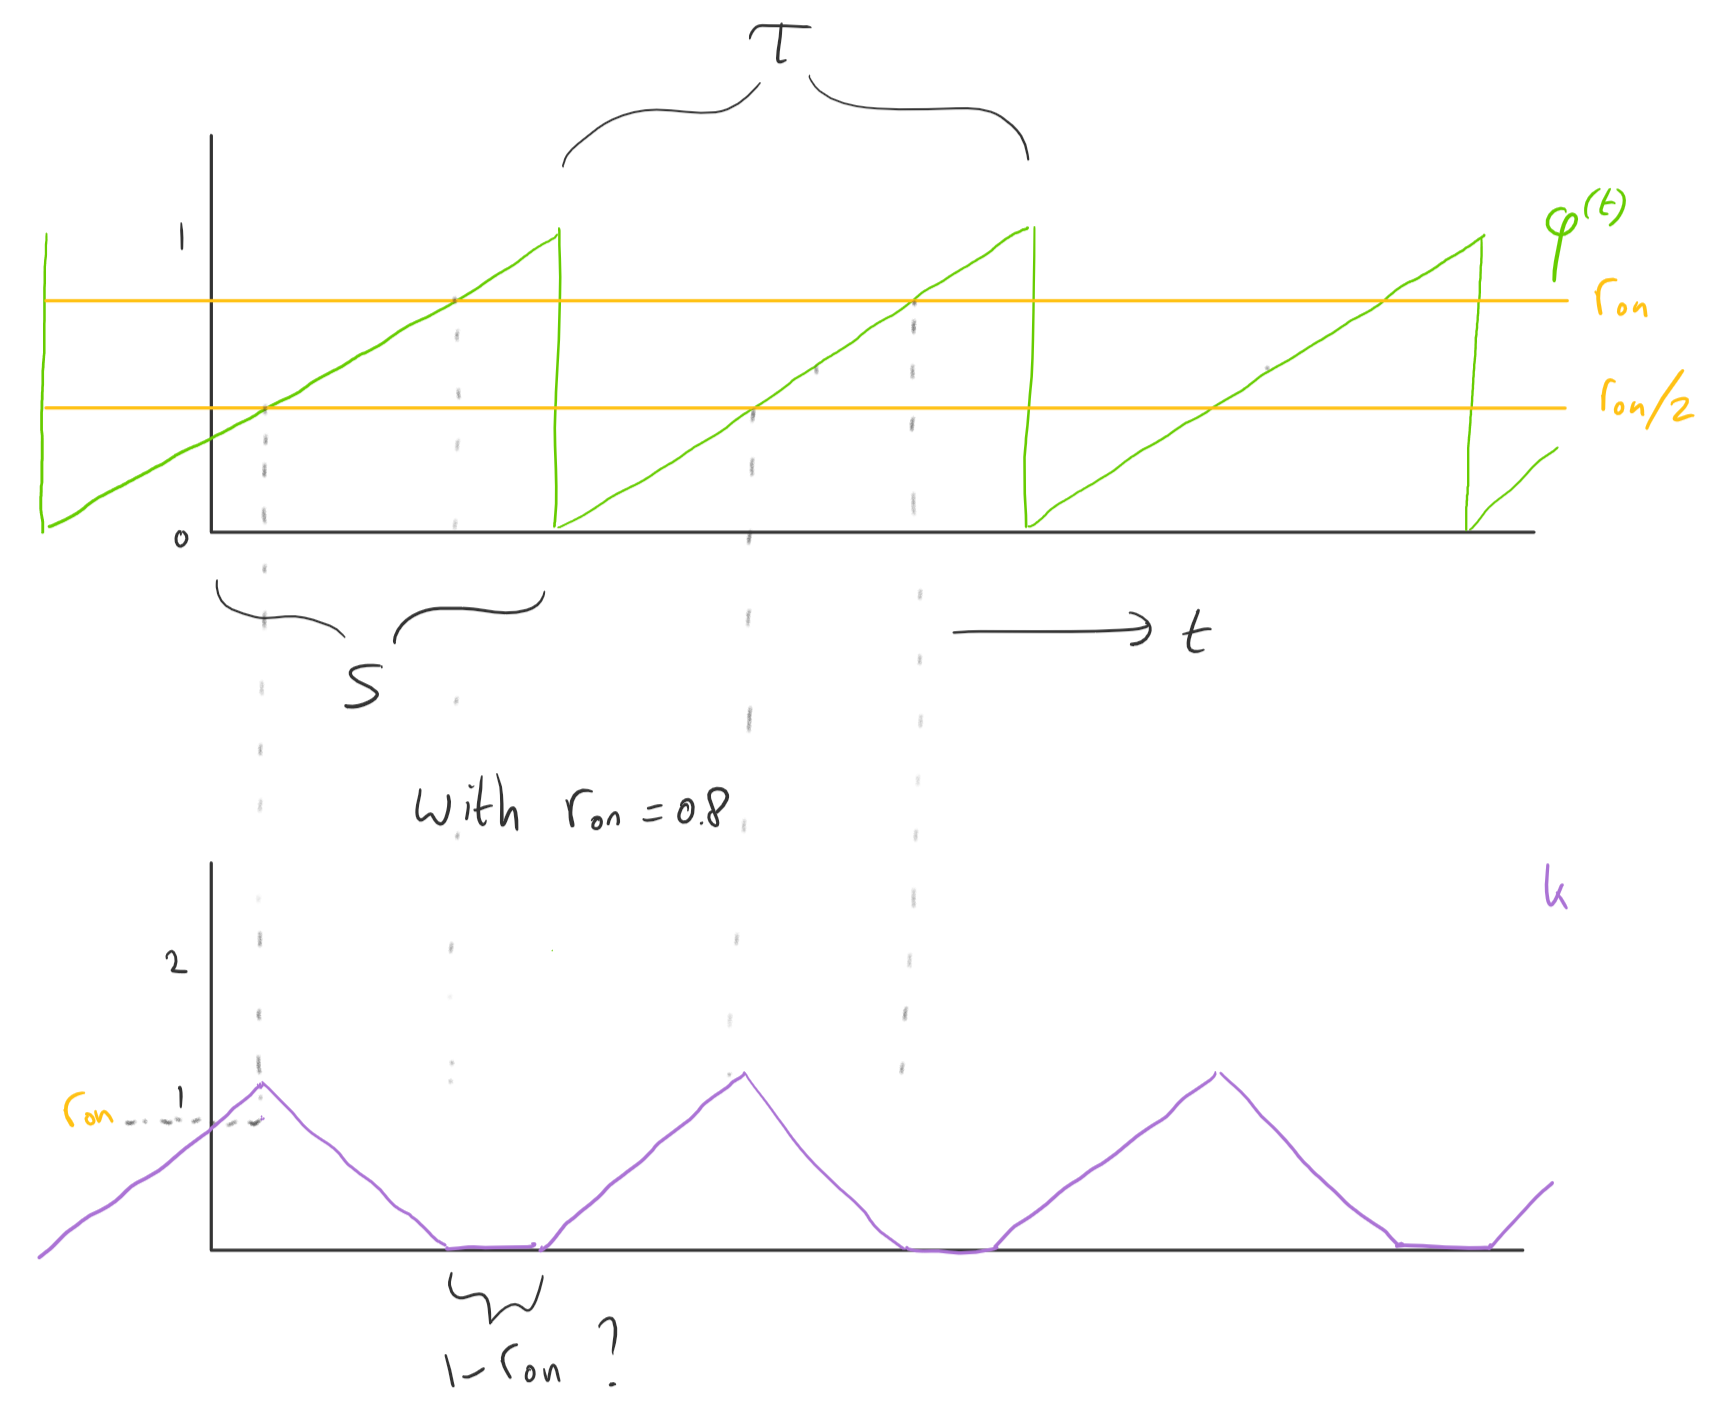 τ
1
φ(t)
r_on
r_on/2
0
s
t
with r_on = 0.8
k
2
1
r_on
1-r_on ?